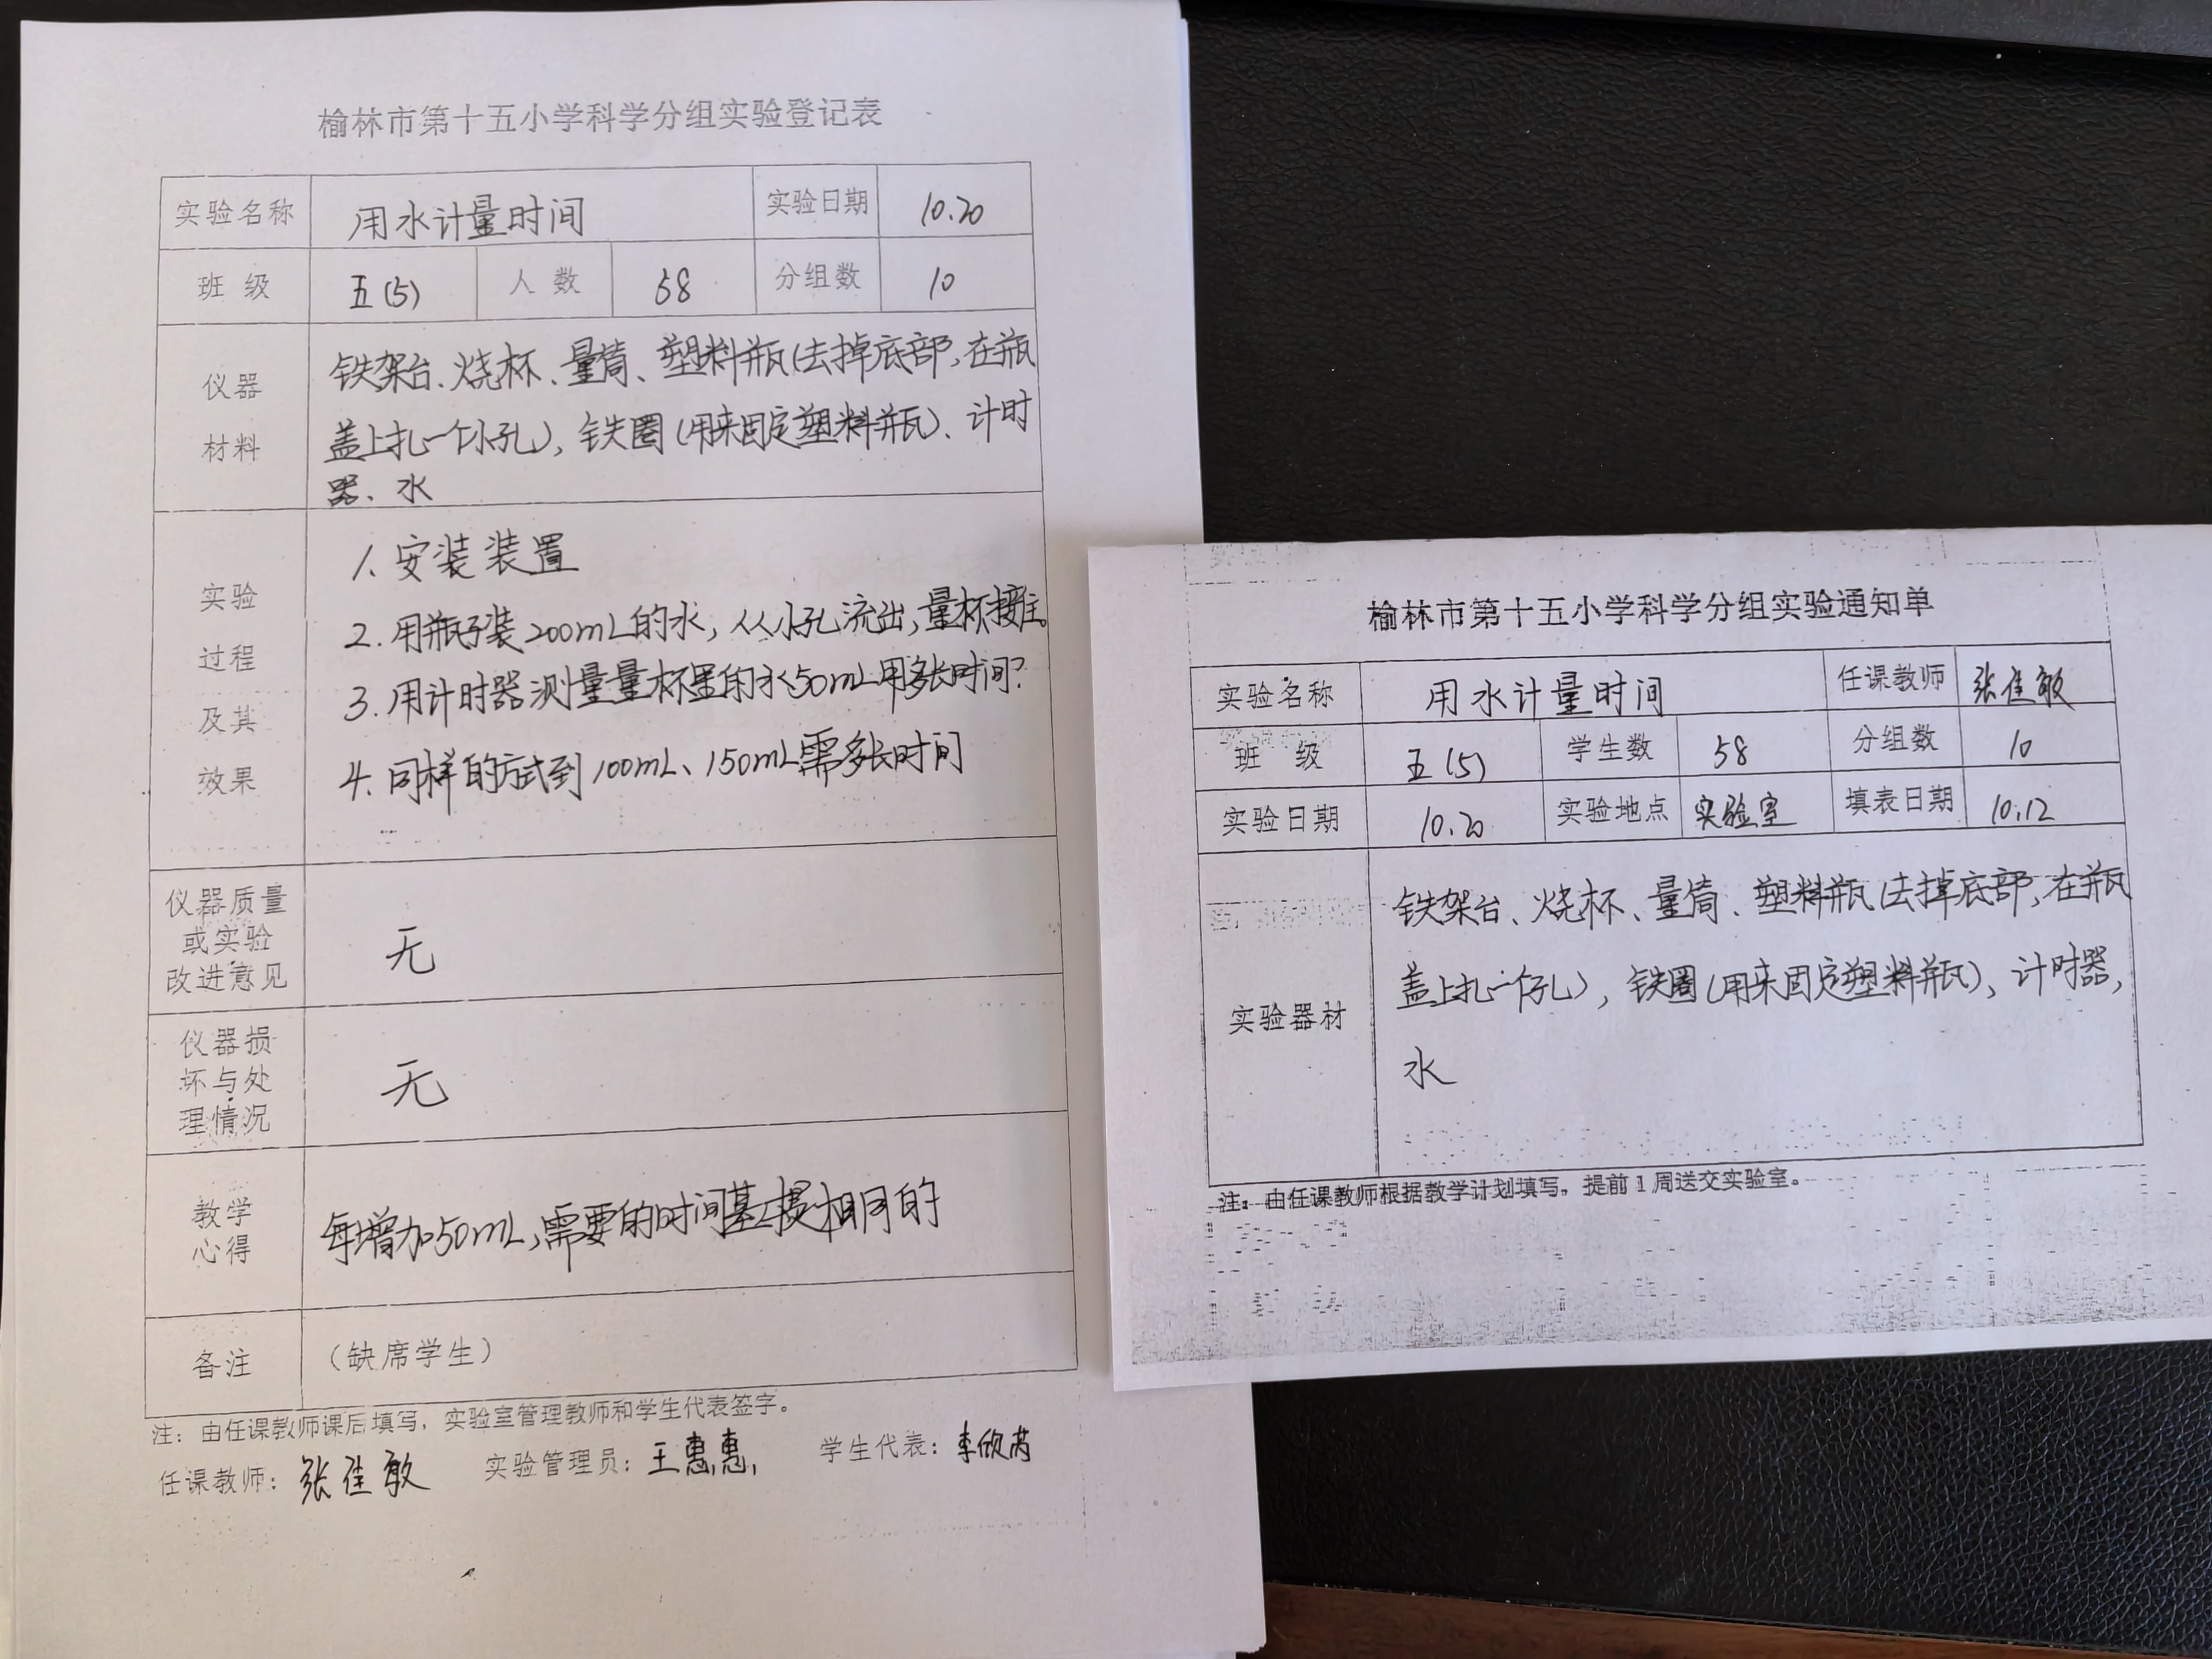 榆林市第十五小学科学分组实验登记表
实验名称 用水计量时间 实验日期 10.20
班 级 五(5) 人 数 58 分组数 10
仪器材料
铁架台、烧杯、量筒、塑料瓶(去掉底部,在瓶
盖上扎一个小孔),铁圈(用来固定塑料瓶)、计时
器、水
实验过程及其效果
1.安装装置
2.用瓶子装200mL的水,从小孔流出,量杯接住。
3.用计时器测量量杯里的水50mL用多长时间?
4.同样的方式到100mL、150mL需多长时间
仪器质量或实验改进意见 无
仪器损坏与处理情况 无
教学心得 每增加50mL,需要的时间基本是相同的
备注 (缺席学生)
注:由任课教师课后填写,实验室管理教师和学生代表签字。
任课教师:张佳敏 实验管理员:王惠惠 学生代表:李欣芮
榆林市第十五小学科学分组实验通知单
实验名称 用水计量时间 任课教师 张佳敏
班 级 五(5) 学生数 58 分组数 10
实验日期 10.20 实验地点 实验室 填表日期 10.12
实验器材
铁架台、烧杯、量筒、塑料瓶(去掉底部,在瓶
盖上扎一个孔),铁圈(用来固定塑料瓶)、计时器,
水
注:由任课教师根据教学计划填写,提前1周送交实验室。